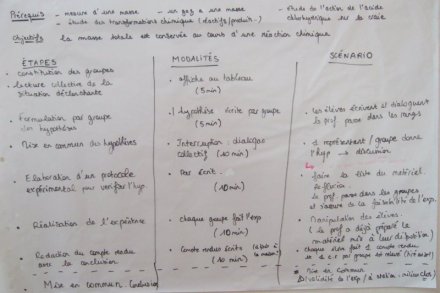 Prérequis - mesure d'une masse - un gaz a une masse - étude de l'action de l'acide
- étude des transformations chimiques (réactifs/produits-) chlorhydrique sur la craie
Objectifs la masse totale est conservée au cours d'une réaction chimique
ÉTAPES
• constitution des groupes
• lecture collective de la
situation déclenchante
• Formulation par groupe
des hypothèses
• Mise en commun des hypothèses
• Elaboration d'un protocole
expérimental pour vérifier l'hyp.
• Réalisation de l'expérience
• Rédaction du compte rendu
avec la conclusion
• Mise en commun Conclusion
MODALITÉS
• affiche au tableau
(5 min)
• 1 hypothèse écrite par groupe
(5 min)
• Interruption : dialogue
collectif (10 min)
• Par écrit
(10 min)
• chaque groupe fait l'exp.
(10 min)
• Compte rendu écrits
(10 min)
SCÉNARIO
• les élèves écrivent et dialoguent
le prof. passe dans les rangs
• 1 représentant / groupe donne
l'hyp → discussion
• faire la liste du matériel.
le prof passe dans les groupes
et s'assure de la faisabilité de l'exp.
• Manipulation des élèves.
( le prof a déjà préparé le
matériel mis à leur disposition)
• chaque élève fait 1 compte rendu
et 1 c.r par groupe est relevé
• Mise en commun